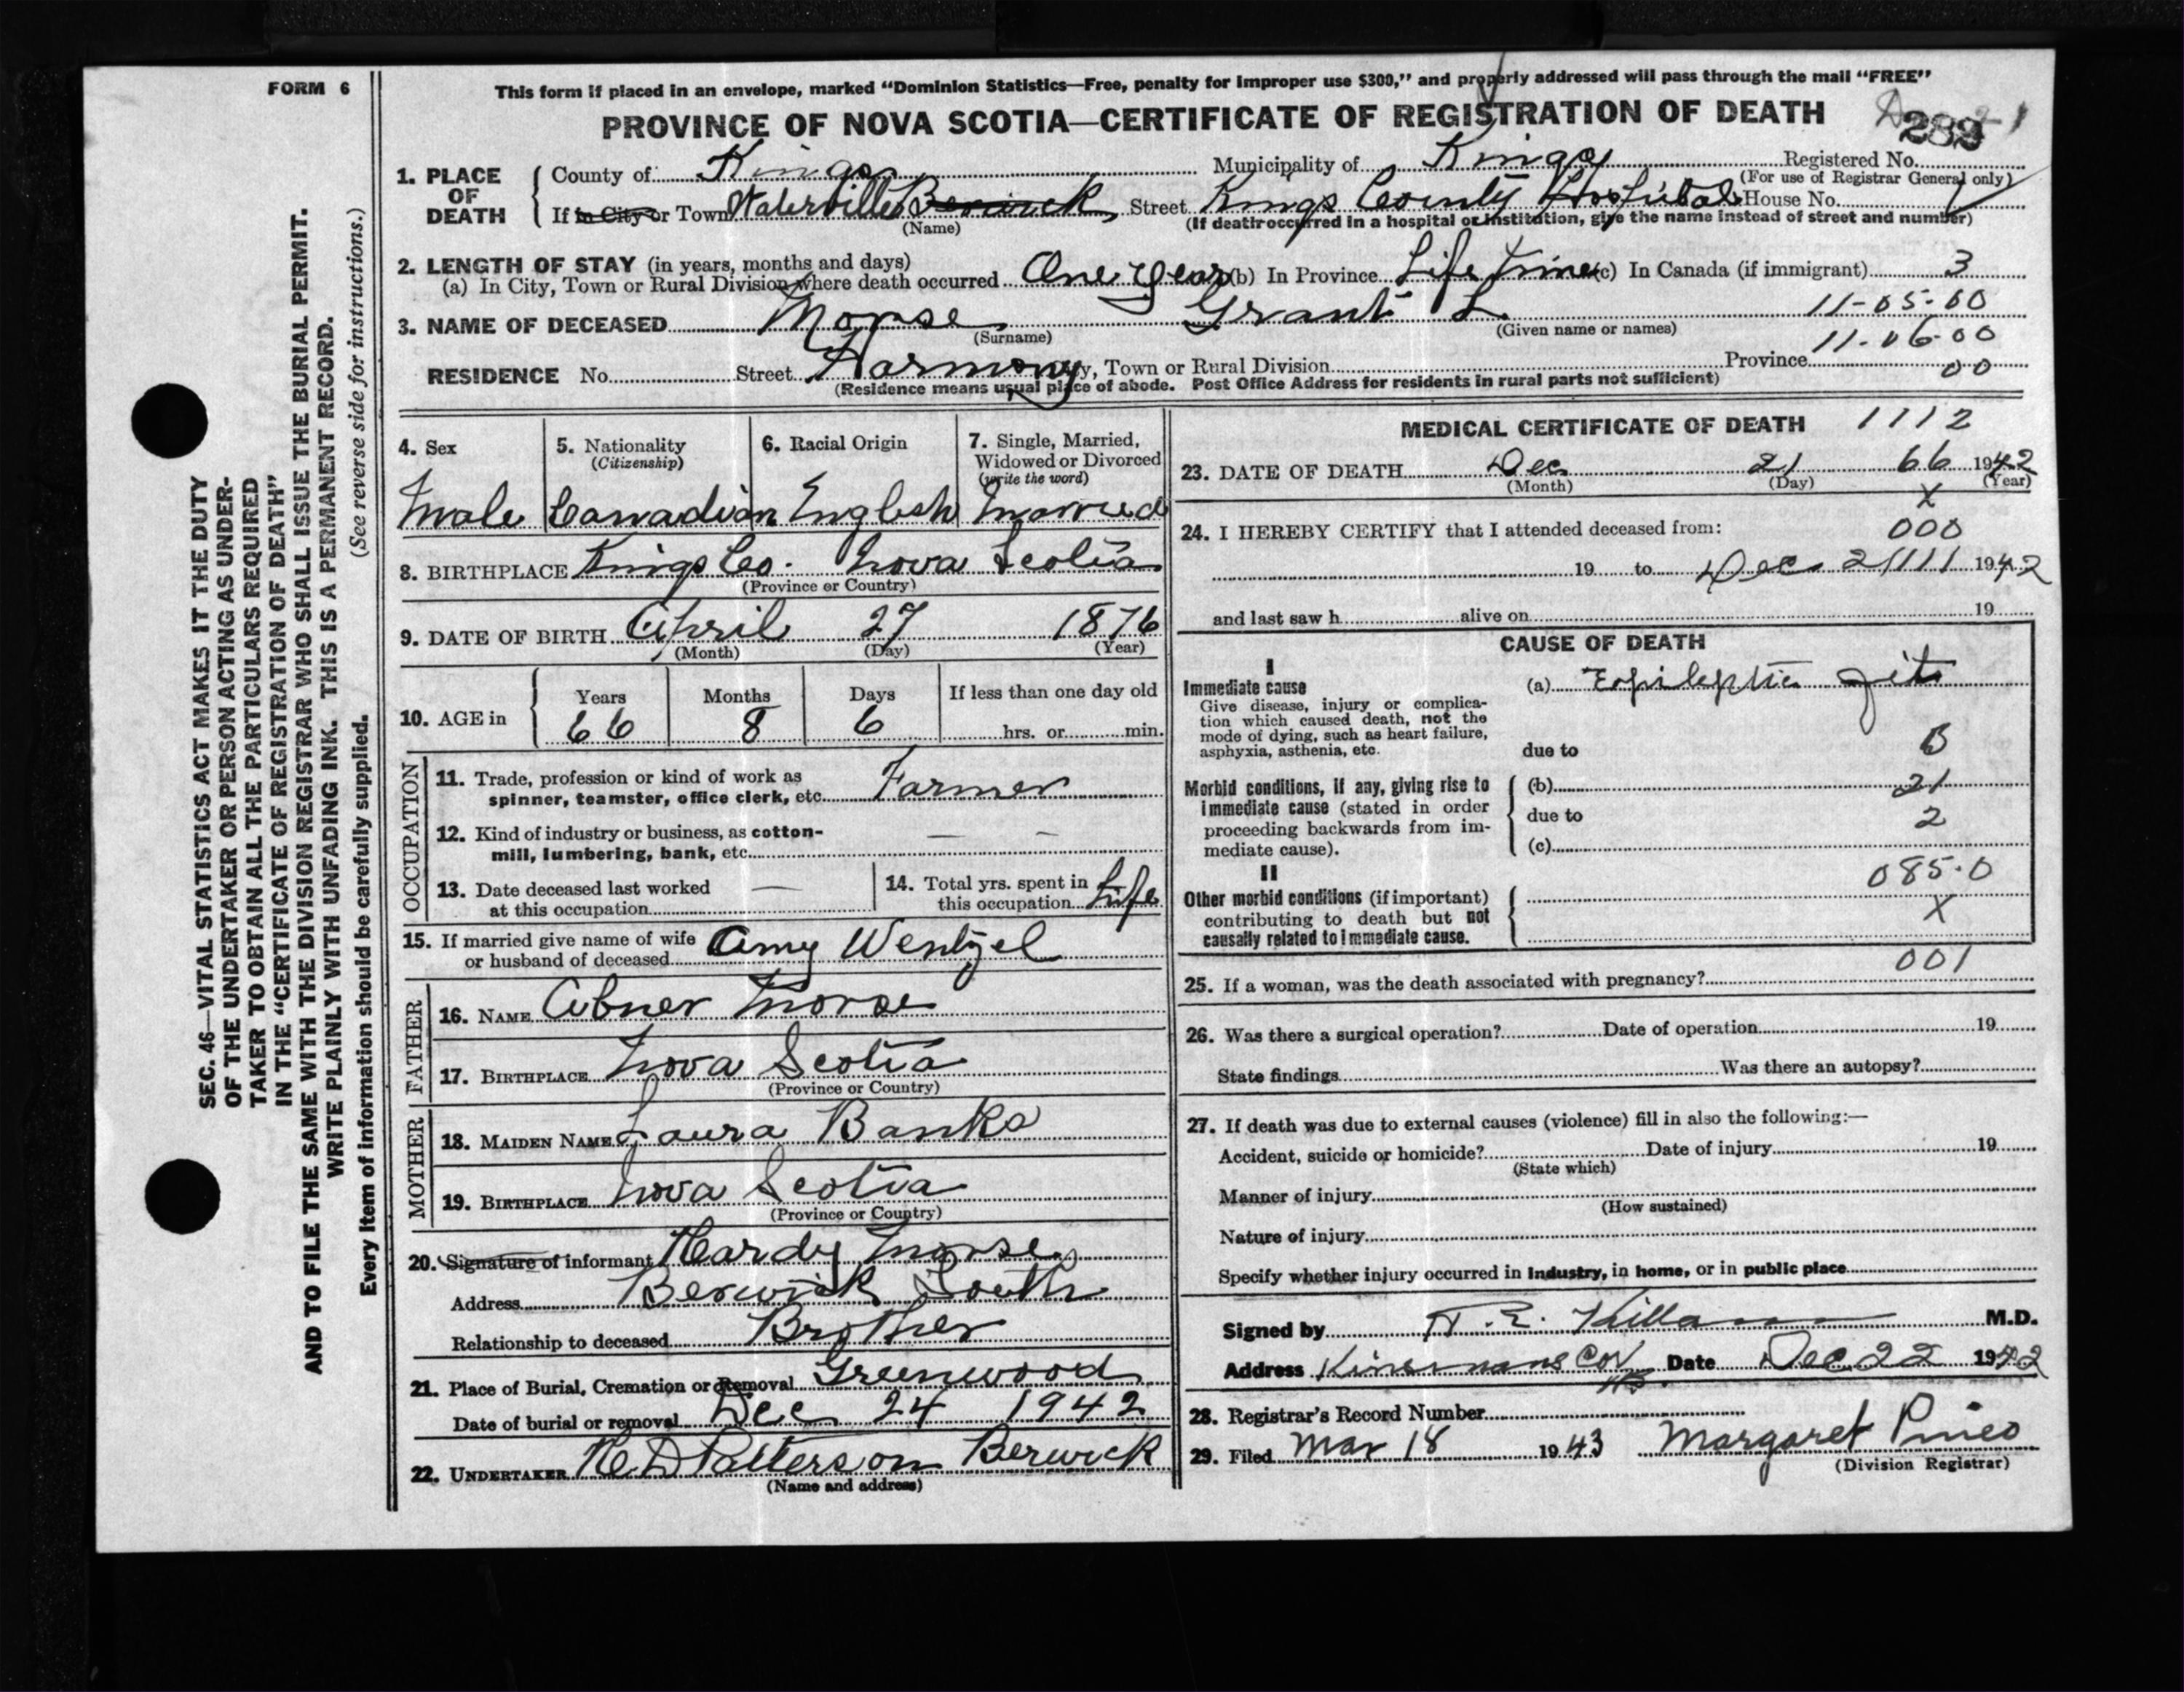 FORM 6
This form if placed in an envelope, marked "Dominion Statistics—Free, penalty for improper use $300," and properly addressed will pass through the mail "FREE"
PROVINCE OF NOVA SCOTIA—CERTIFICATE OF REGISTRATION OF DEATH
1. PLACE OF DEATH
County of Kings Municipality of Kings Registered No.
(For use of Registrar General only)
If in City or Town Waterville Berwick Street Kings County Hospital House No.
(Name) (If death occurred in a hospital or institution, give the name instead of street and number)
2. LENGTH OF STAY (in years, months and days)
(a) In City, Town or Rural Division where death occurred One year (b) In Province Life time (c) In Canada (if immigrant) 3
11-05-00
3. NAME OF DECEASED Morse Grant L.
(Surname) (Given name or names)
11-06-00
RESIDENCE No. Street Harmony City, Town or Rural Division Province 00
(Residence means usual place of abode. Post Office Address for residents in rural parts not sufficient)
4. Sex
Male
5. Nationality
(Citizenship)
Canadian
6. Racial Origin
English
7. Single, Married,
Widowed or Divorced
(write the word)
Married
8. BIRTHPLACE Kings Co. Nova Scotia
(Province or Country)
9. DATE OF BIRTH April 27 1876
(Month) (Day) (Year)
10. AGE in
Years Months Days If less than one day old
66 8 6 hrs. or min.
OCCUPATION
11. Trade, profession or kind of work as
spinner, teamster, office clerk, etc. Farmer
12. Kind of industry or business, as cotton-
mill, lumbering, bank, etc. — —
13. Date deceased last worked
at this occupation —
14. Total yrs. spent in
this occupation Life
15. If married give name of wife
or husband of deceased Amy Wentzel
FATHER
16. NAME Abner Morse
17. BIRTHPLACE Nova Scotia
(Province or Country)
MOTHER
18. MAIDEN NAME Laura Banks
19. BIRTHPLACE Nova Scotia
(Province or Country)
20. Signature of informant Hardy Morse
Address Berwick South
Relationship to deceased Brother
21. Place of Burial, Cremation or Removal Greenwood
Date of burial or removal Dec 24 1942
22. UNDERTAKER H D Patterson Berwick
(Name and address)
MEDICAL CERTIFICATE OF DEATH 1112
23. DATE OF DEATH Dec 21 66 1942
(Month) (Day) (Year)
X
24. I HEREBY CERTIFY that I attended deceased from: 000
19 to Dec 21 111 1942
and last saw h alive on 19
CAUSE OF DEATH
I
Immediate cause
Give disease, injury or complica-
tion which caused death, not the
mode of dying, such as heart failure,
asphyxia, asthenia, etc.
(a) Epileptic fits
due to B
Morbid conditions, if any, giving rise to
immediate cause (stated in order
proceeding backwards from im-
mediate cause).
(b) 21
due to 2
(c)
II
085.0
Other morbid conditions (if important)
contributing to death but not
causally related to immediate cause.
X
001
25. If a woman, was the death associated with pregnancy?
26. Was there a surgical operation? Date of operation 19
State findings Was there an autopsy?
27. If death was due to external causes (violence) fill in also the following:—
Accident, suicide or homicide? Date of injury 19
(State which)
Manner of injury
(How sustained)
Nature of injury
Specify whether injury occurred in industry, in home, or in public place
Signed by R. E. Killam M.D.
Address Kinsmans Cor Date Dec 22 1942
28. Registrar's Record Number
29. Filed Mar 18 1943 Margaret Pineo
(Division Registrar)
SEC. 46—VITAL STATISTICS ACT MAKES IT THE DUTY
OF THE UNDERTAKER OR PERSON ACTING AS UNDER-
TAKER TO OBTAIN ALL THE PARTICULARS REQUIRED
IN THE "CERTIFICATE OF REGISTRATION OF DEATH"
AND TO FILE THE SAME WITH THE DIVISION REGISTRAR WHO SHALL ISSUE THE BURIAL PERMIT.
WRITE PLAINLY WITH UNFADING INK. THIS IS A PERMANENT RECORD.
(See reverse side for instructions.)
Every item of information should be carefully supplied.